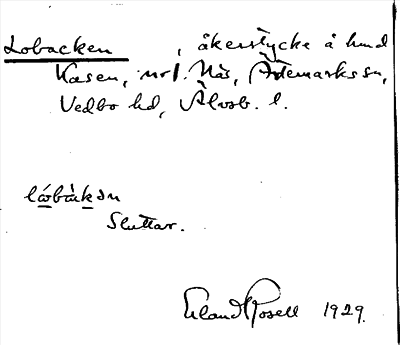 Lobacken , åkerstycke å hmd
Kasen, nr 1. Näs, Ärtemarks sn,
Vedbo hd, Älvsb. l.
lωbàkən
Sluttar.
Erland Rosell 1929.